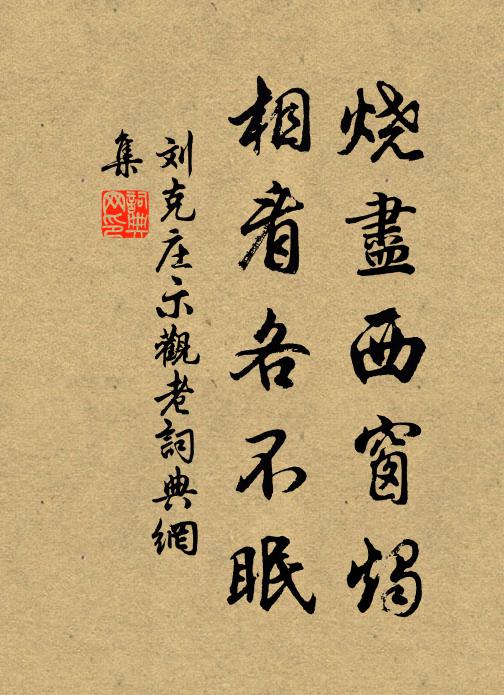 烧盡西窗燭
相看各不眠
刘克庄示觀老詞典網
集
詞典
网印